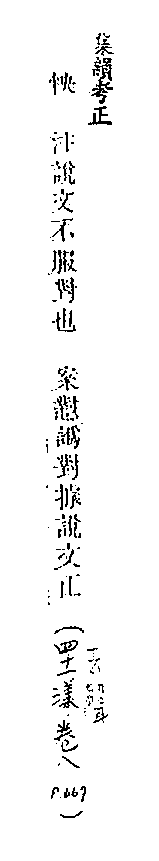 集韻考正
怏　注說文不服對也　案懟譌對據說文正(四十一漾.卷八 P.667)
去聲